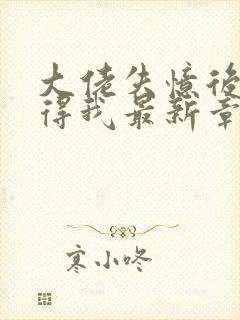 大佬失憶後
得我最新章
寒小咚